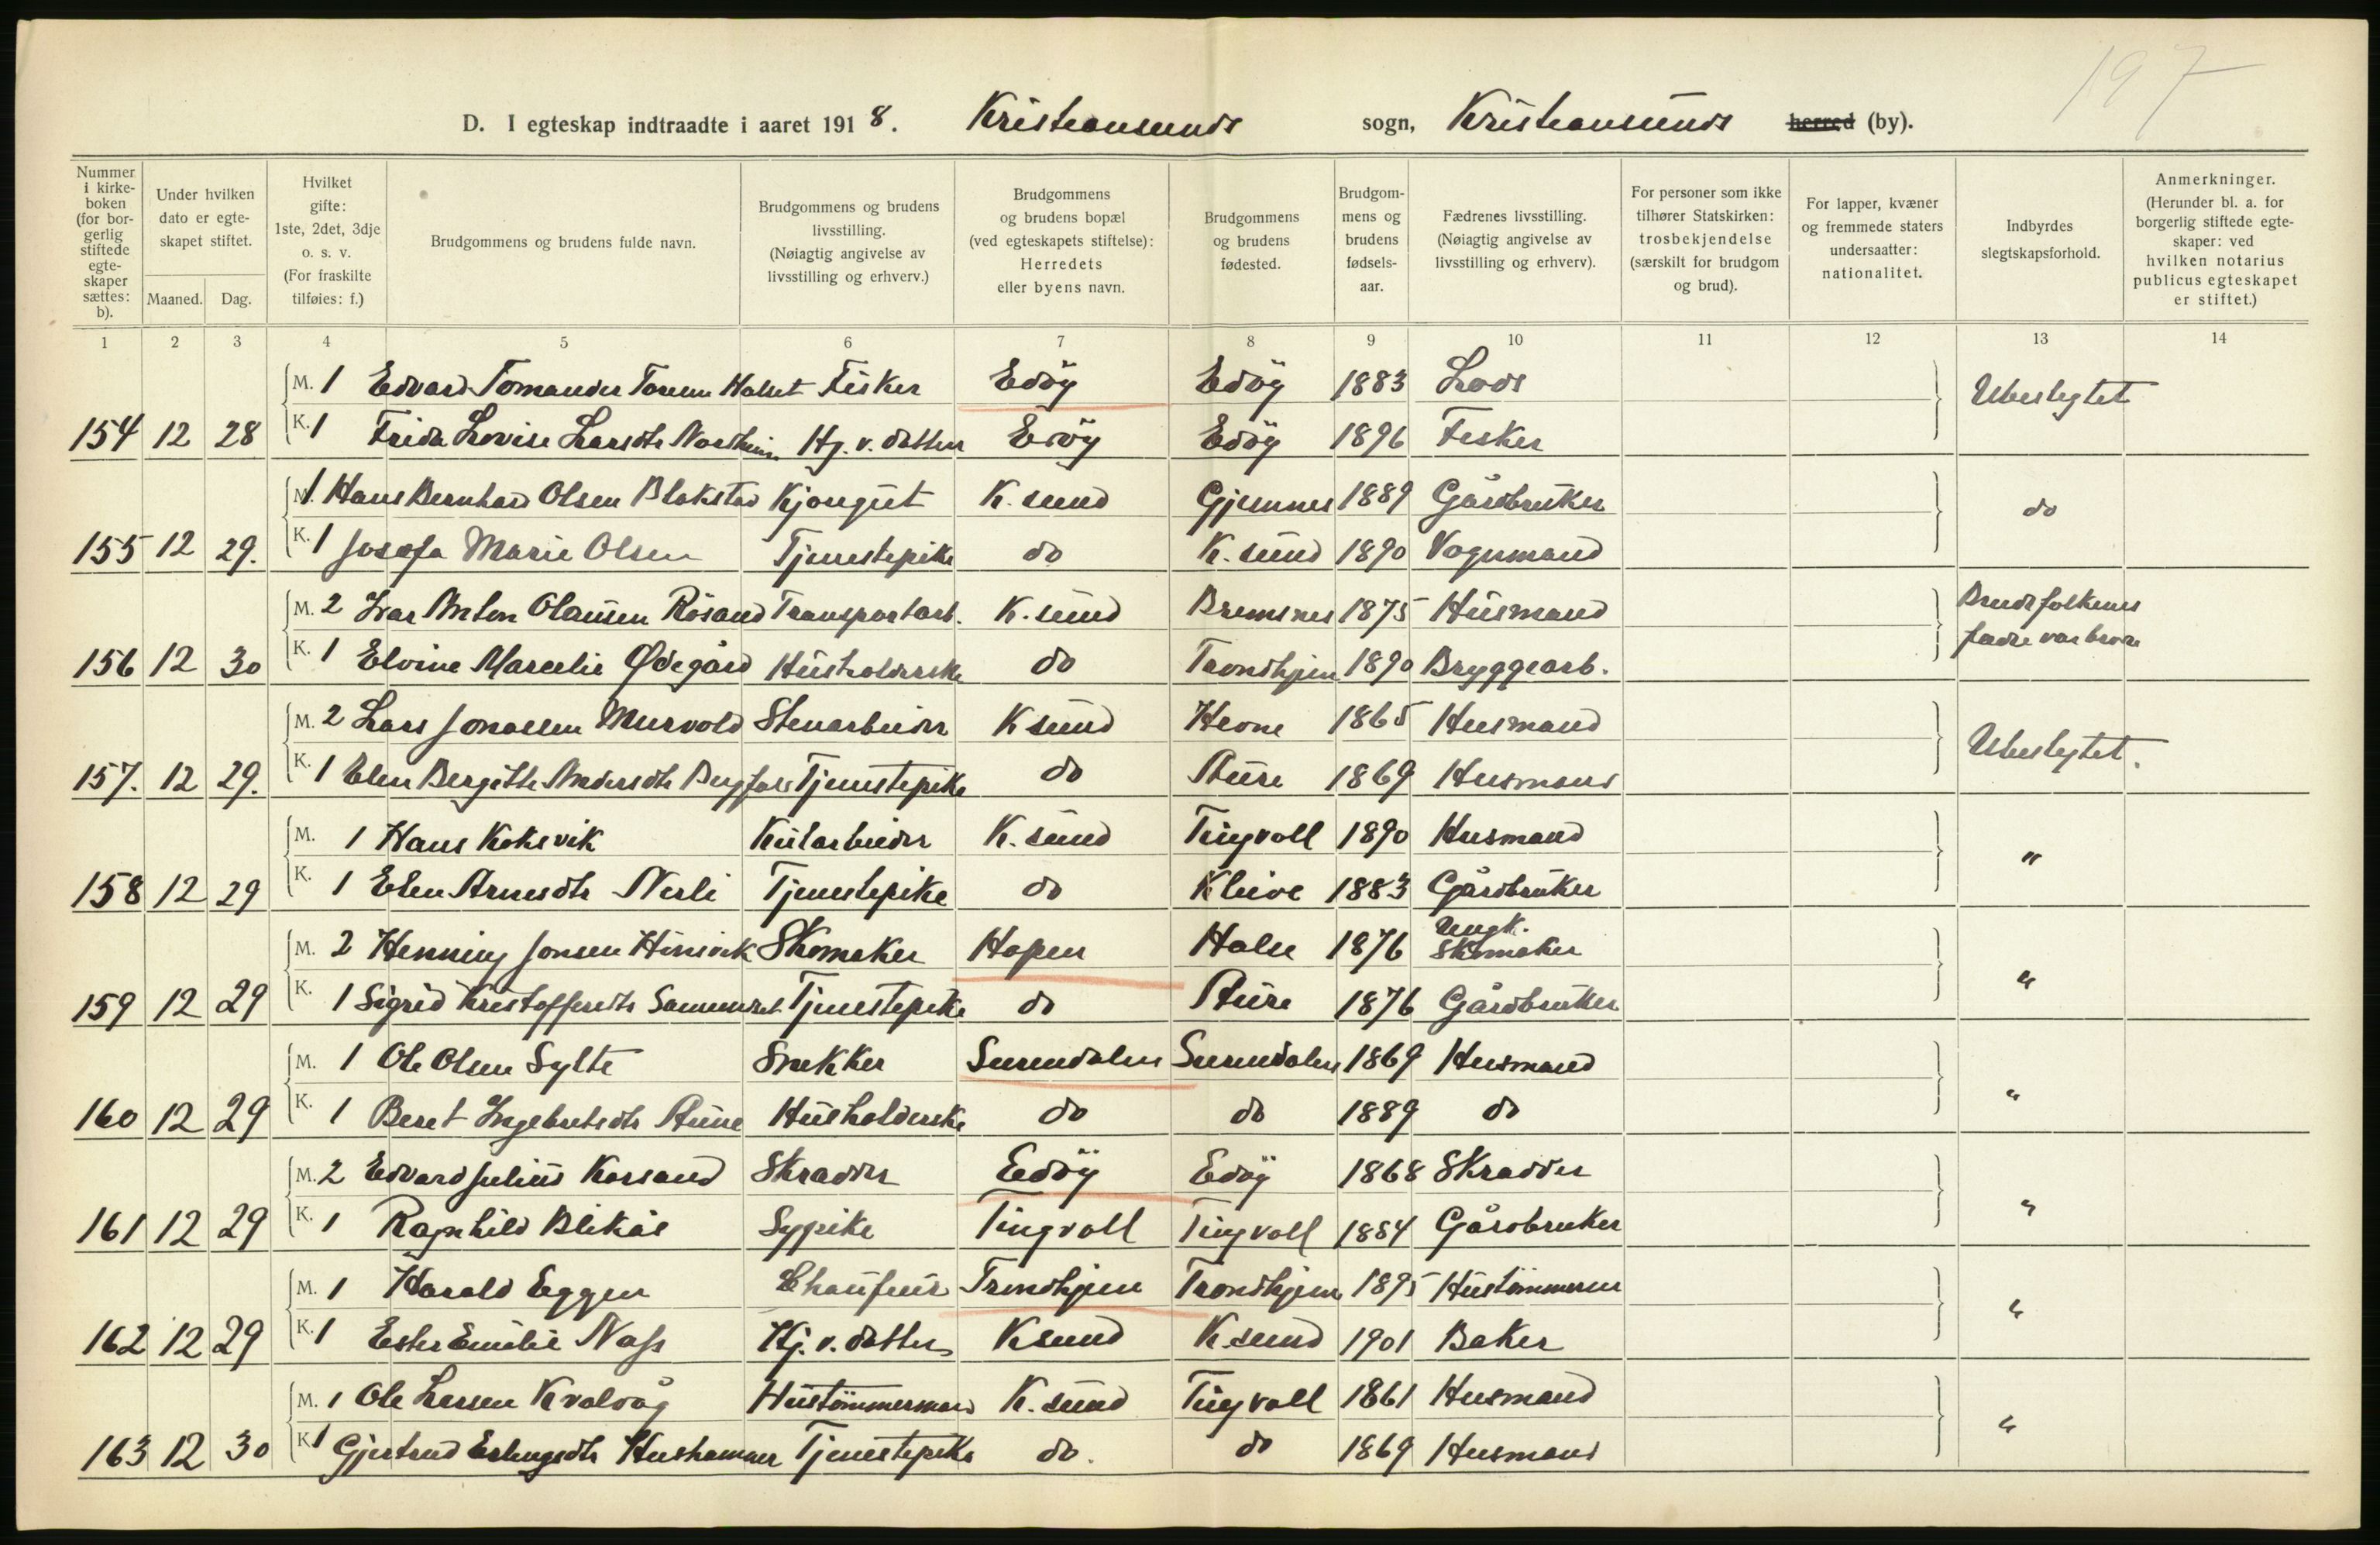 197
D. I egteskap indtraadte i aaret 1918. Kristiansunds sogn, Kristiansunds herred (by).
Nummer i kirkeboken (for borgerlig stiftede egteskaper sættes: b).
Under hvilken dato er egteskapet stiftet.
Maaned. Dag.
Hvilket gifte: 1ste, 2det, 3dje o. s. v. (For fraskilte tilføies: f.)
Brudgommens og brudens fulde navn.
Brudgommens og brudens livsstilling. (Nøiagtig angivelse av livsstilling og erhverv.)
Brudgommens og brudens bopæl (ved egteskapets stiftelse): Herredets eller byens navn.
Brudgommens og brudens fødested.
Brudgommens og brudens fødselsaar.
Fædrenes livsstilling. (Nøiagtig angivelse av livsstilling og erhverv).
For personer som ikke tilhører Statskirken: trosbekjendelse (særskilt for brudgom og brud).
For lapper, kvæner og fremmede staters undersaatter: nationalitet.
Indbyrdes slegtskapsforhold.
Anmerkninger. (Herunder bl. a. for borgerlig stiftede egteskaper: ved hvilken notarius publicus egteskapet er stiftet.)
1 2 3 4 5 6 7 8 9 10 11 12 13 14
M. 1 Edvard Tomander Halset Fisker Edöy Edöy 1883 Lods Ubeslegtet
154 12 28 K. 1 Frida Lovise Larsdtr Nordheim Hj. v. datter Edöy Edöy 1896 Fisker
M. 1 Hans Bernhard Olsen Blakstad Kjöngut K. sund Gjemnes 1889 Gårdbruker do
155 12 29. K. 1 Josefa Marie Olsen Tjenestepike do K. sund 1890 Vognmand
M. 2 Ivar Anton Olausen Rösand Transportarb. K. sund Bremsnes 1875 Husmand Brudefolkenes fædre var brødre
156 12 30 K. 1 Elvine Marcelie Ødegård Husholderske do Trondhjem 1890 Bryggearb.
M. 2 Lars Jonassen Murvold Stenarbeider K sund Hevne 1865 Husmand Ubeslegtet.
157. 12 29. K. 1 Elen Bergitte Andersdtr Tjenestepike do Aure 1869 Husmand
M. 1 Hans Koksvik Kularbeider K. sund Tingvoll 1890 Husmand "
158 12 29 K. 1 Elen Arnesdtr Nerli Tjenestepike do Kleive 1883 Gårdbruker
M. 2 Henning Jonsen Hinsvik Skomaker Hopen Halse 1876 Ungk. Skomaker "
159 12 29 K. 1 Sigrid Kristoffersdtr Tjenestepike do Aure 1876 Gårdbruker
M. 1 Ole Olsen Sylte Snekker Surendalen Surendalen 1869 Husmand "
160 12 29 K. 1 Beret Ingebretsdtr Aune Husholderske do do 1889 do
M. 2 Edvard Julius Korsand Skradder Edöy Edöy 1868 Skradder "
161 12 29 K. 1 Ragnhild Blikås Sypike Tingvoll Tingvoll 1884 Gårdbruker
M. 1 Harald Eggen Chaufeur Trondhjem Trondhjem 1895 Hustömmerm "
162 12 29 K. 1 Ester Emilie Næss Hj. v. datter K sund K. sund 1901 Baker
M. 1 Ole Larsen Kvalvåg Hustömmermand K. sund Tingvoll 1861 Husmand "
163 12 30 K. 1 Gjertrud Erlingsdtr Hushammer Tjenestepike do. do 1869 Husmand